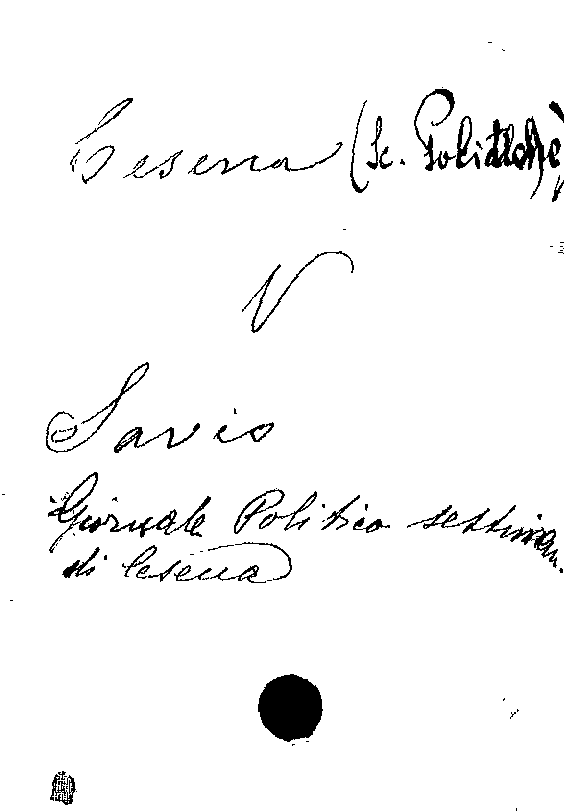 Cesena (Sc. Politiche)
V
Savio
Giornale Politico settiman.
di Cesena